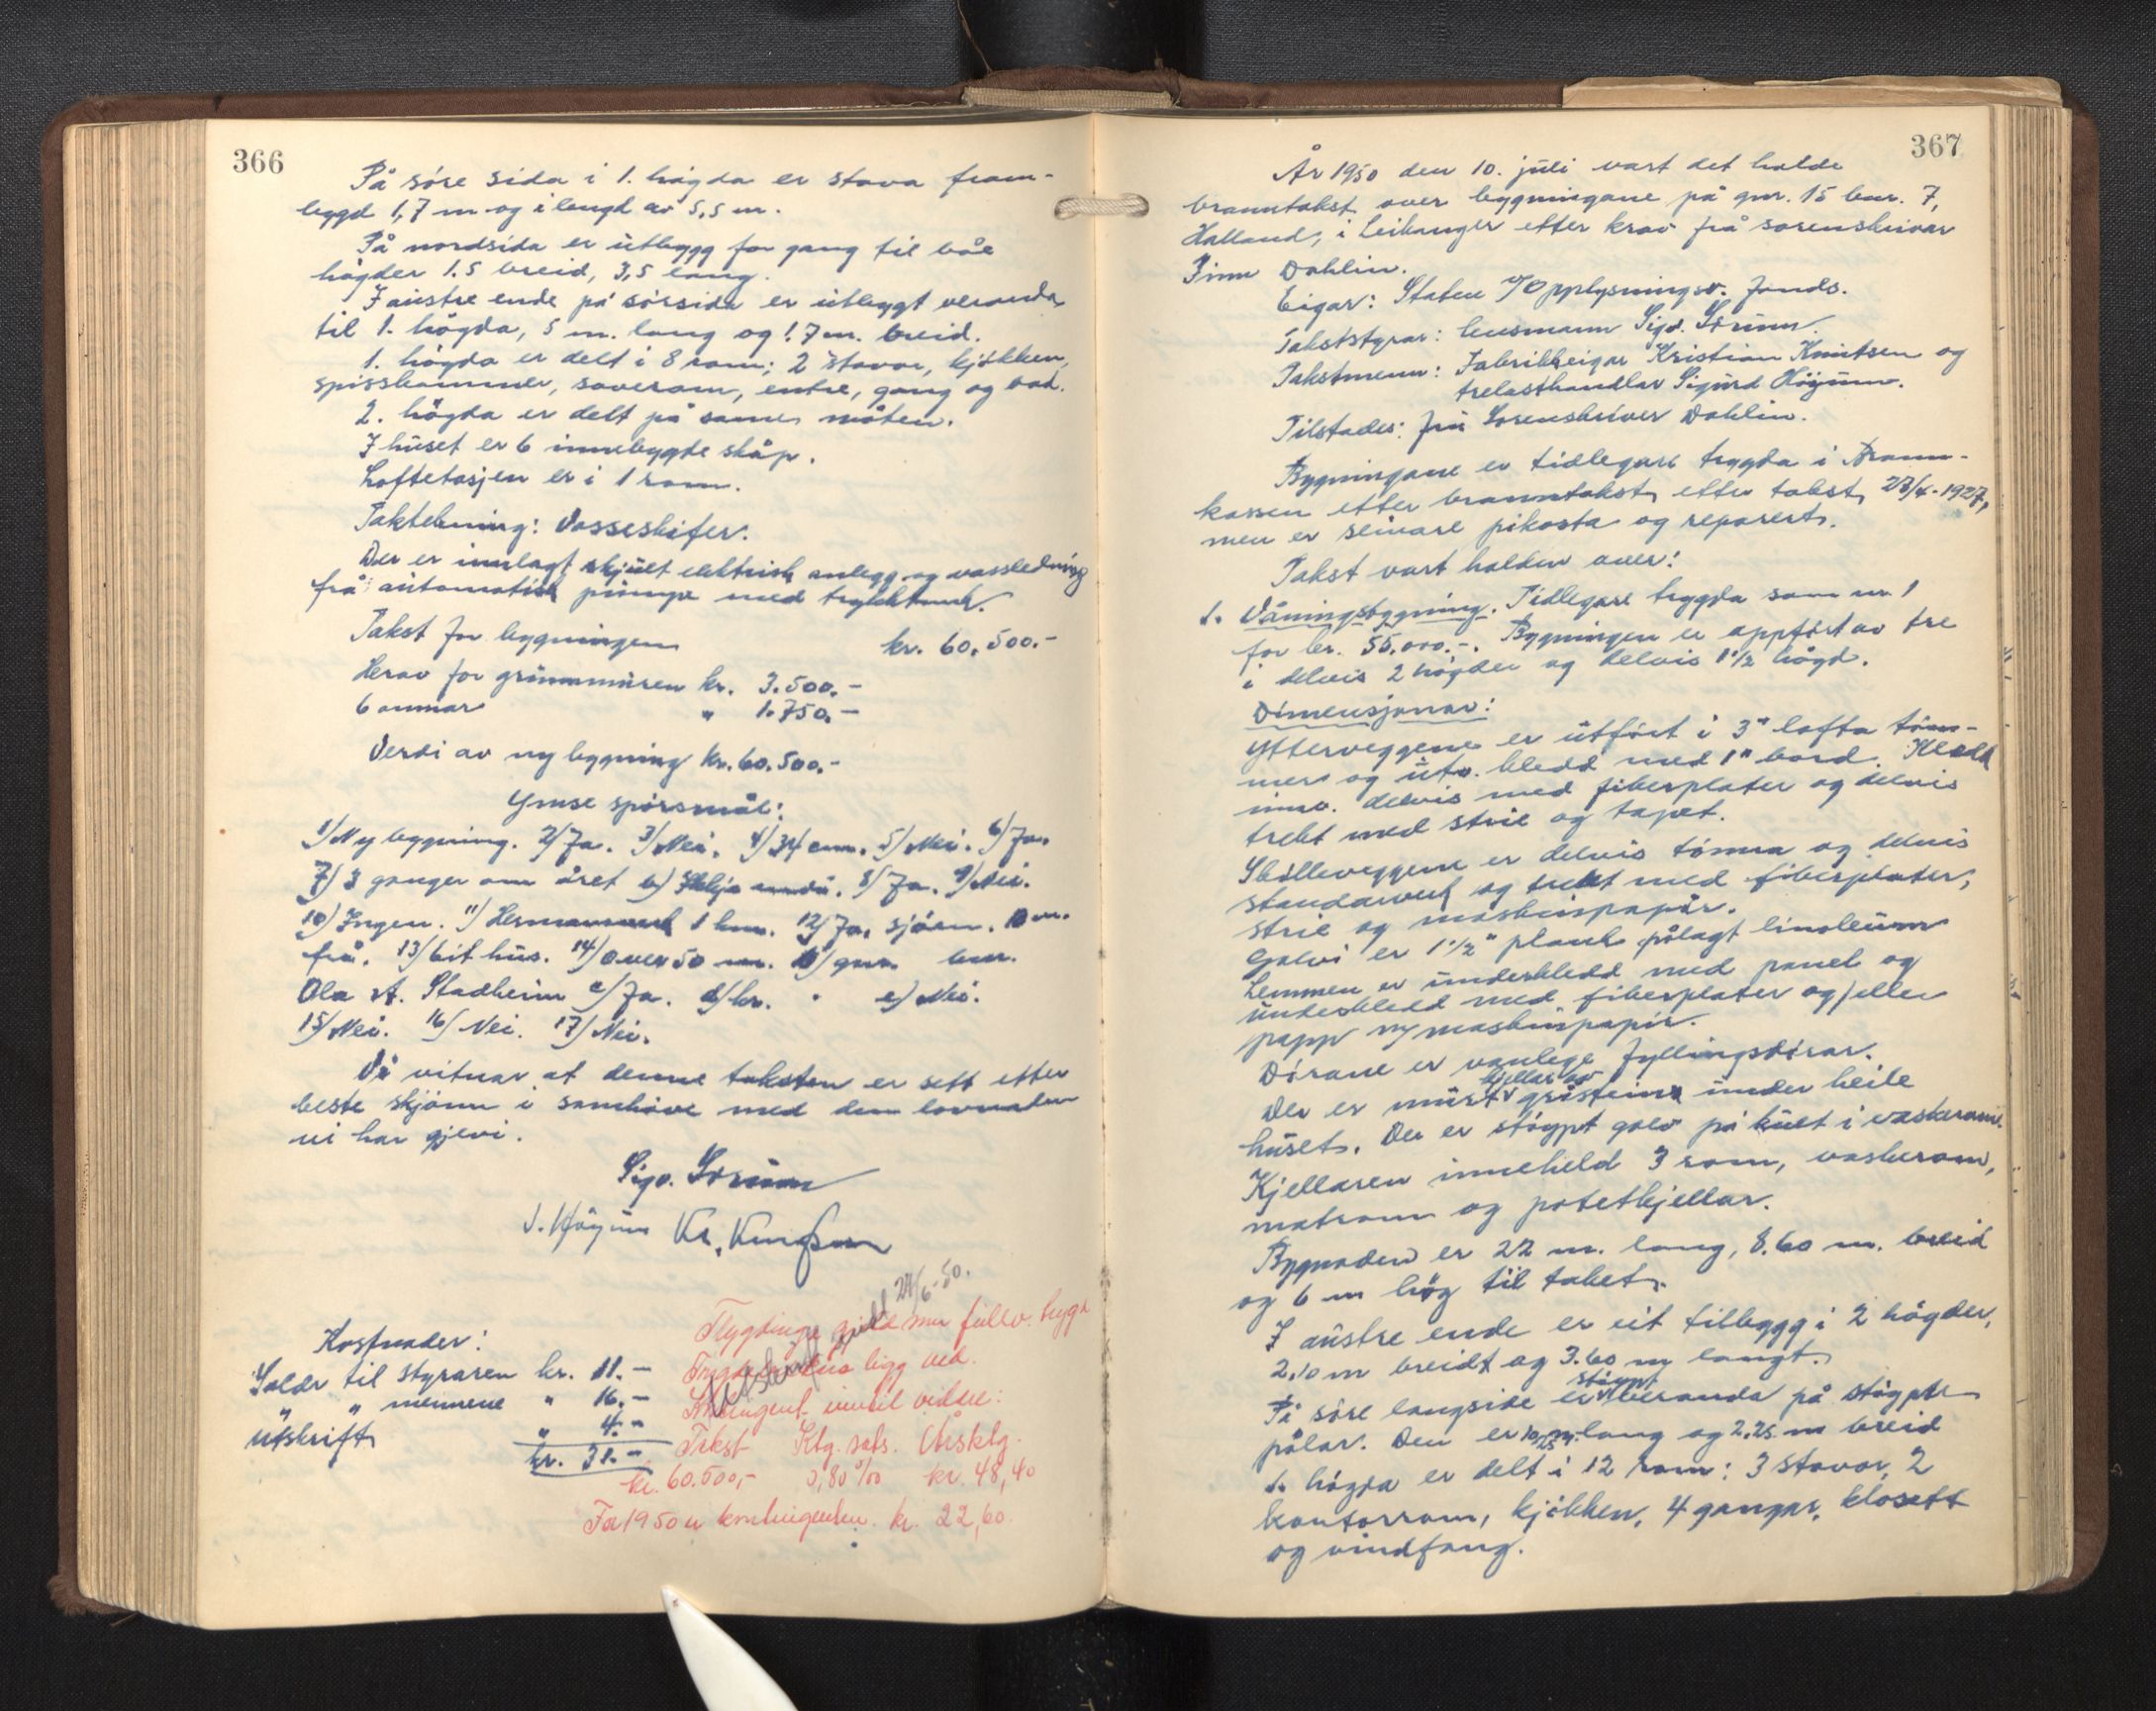 366
På søre sida i 1. høgda er stova fram-
bygd 1,7 m og i lengd av 5,5 m.
På nordsida er utbygg for gang til båe
høgder 1.5 breid, 3,5 lang.
I austre ende på sørsida er utbygt veranda
til 1. høgda, 5 m. lang og 1.7 m. breid.
1. høgda er delt i 8 rom; 2 stover, kjøkken,
spisskammer, soverom, entre, gang og bad.
2. høgda er delt på same måten.
I huset er 6 innebygde skåp.
Loftetasjen er i 1 rom.
Taktekning: Vosseskifer.
Der er innlagt skjult elektrisk anlegg og vassledning
frå automatisk pumpe med trykktank.
Takst for bygningen kr. 60.500.-
Herav for grunnmuren kr. 3.500.-
6 omnar " 1.750.-
Verdi av ny bygning kr. 60.500.-
Ymse spørsmål:
1/ Ny bygning. 2/ Ja. 3/ Nei. 4/ 34 cm. 5/ Nei. 6/ Ja.
7/ 3 ganger om året b/ Ikkje endå. 8/ Ja. 9/ Nei.
10/ Ingen. 11/ Hermansverk 1 km. 12/ Ja, sjøen. 10 m.
frå. 13/ Eit hus. 14/ Over 50 m. b/ gnr. bnr.
Ola A. Stadheim c/ Ja. d/ kr. " e/ Nei.
15/ Nei. 16/ Nei. 17/ Nei.
Vi vitnar at denne taksten er sett etter
beste skjønn i samhøve med den lovnaden
vi har gjevi.
Sigv. Sorum
S. Høyum Kr. Knutsen
Kostnader:
Godtgj. til styraren kr. 11.-
" " mennene " 16.-
Utskrift " 4.-
kr. 31.-
Utskrift gjeld 24/6-50.
Trygdinga gjeld som fullv. bygn
ligg ved.
Kontingent inntil vidare:
Takst Ktg. sats. Årsktg.
kr. 60.500,- 0,80 ‰ kr. 48,40
For 1950 er kontingenten kr. 22,60.
367
År 1950 den 10. juli vart det halde
branntakst over bygningane på gnr. 15 bnr. 7,
Halland, i Leikanger etter krav frå sorenskrivar
Finn Dahlin.
Eigar: Staten v/Opplysningsv. fonds.
Takststyrar: lensmann Sigv. Sorum.
Takstmenn: Fabrikkeigar Kristian Knutsen og
trelasthandlar Sigurd Høyum.
Tilstades: fru Sorenskriver Dahlin.
Bygningane er tidlegare trygda i Brann-
kassen etter branntakst etter takst 27/4-1927,
men er seinare påkosta og reparert.
Takst vart halden over:
1. Våningsbygning. Tidlegare trygda som nr. 1
for kr. 55.000.-. Bygningen er oppført av tre
i delvis 2 høgder og delvis 1 1/2 høgd.
Dimensjonar:
Ytterveggene er utført i 3" lafta tøm-
mer og utv. kledd med 1" bord. Kledd
innv. delvis med fiberplater og delvis
trekt med strie og tapet.
Skilleveggene er delvis tømra og delvis
standarverk og trekt med fiberplater,
strie og maskinpapir.
Golvi er 1 1/2" plank pålagt linoleum
Lemmen er underkledd med panel og
underkledd med fiberplater og/eller
papp m/ maskinpapir.
Dørane er vanlege fyllingsdørar.
Der er murt kjellar av gråstein under heile
huset. Der er støypt golv på kult i vaskerom.
Kjellaren inneheld 3 rom, vaskerom,
matrom og potetkjellar.
Bygnaden er 22 m. lang, 8.60 m. breid
og 6 m høg til taket.
I austre ende er eit tilbygg i 2 høgder,
2.10 m breidt og 3.60 m langt.
På søre langside er støypt veranda på støypte
pålar. Den er 10,25 m. lang og 2,25. m breid
1. høgda er delt i 12 rom: 3 stover, 2
kontorrom, kjøkken, 4 gangar, klosett
og vindfang.